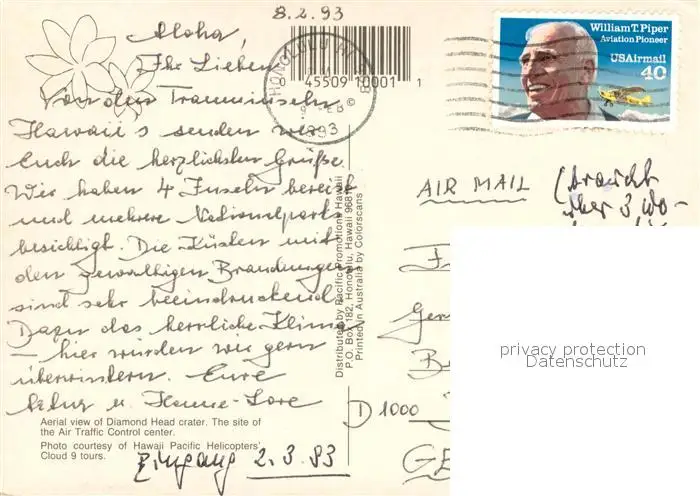 8.2.93
Aloha,
Ihr Lieben
Von den Trauminseln
Hawaii's senden wir
Euch die herzlichsten Grüße.
Wir haben 4 Inseln bereist
und mehrere Nationalparks
besichtigt. Die Küsten mit
den gewaltigen Brandungen
sind sehr beeindruckend.
Dazu das herrliche Klima
– hier würden wir gern
überwintern. Eure
u. Hanne-Lore
Aerial view of Diamond Head crater. The site of
the Air Traffic Control center.
Photo courtesy of Hawaii Pacific Helicopters'
Cloud 9 tours.
Eingang 2.3.93
0 45509 10001 1
©
HONOLULU HI
FEB
1993
Distributed by Pacific Promotions Hawaii
P.O. Box 182, Honolulu, Hawaii 968
Printed in Australia by Colorscans
William T. Piper
Aviation Pioneer
USAirmail
40
AIR MAIL
(braucht
über 3 Wo-
D 1000
privacy protection
Datenschutz